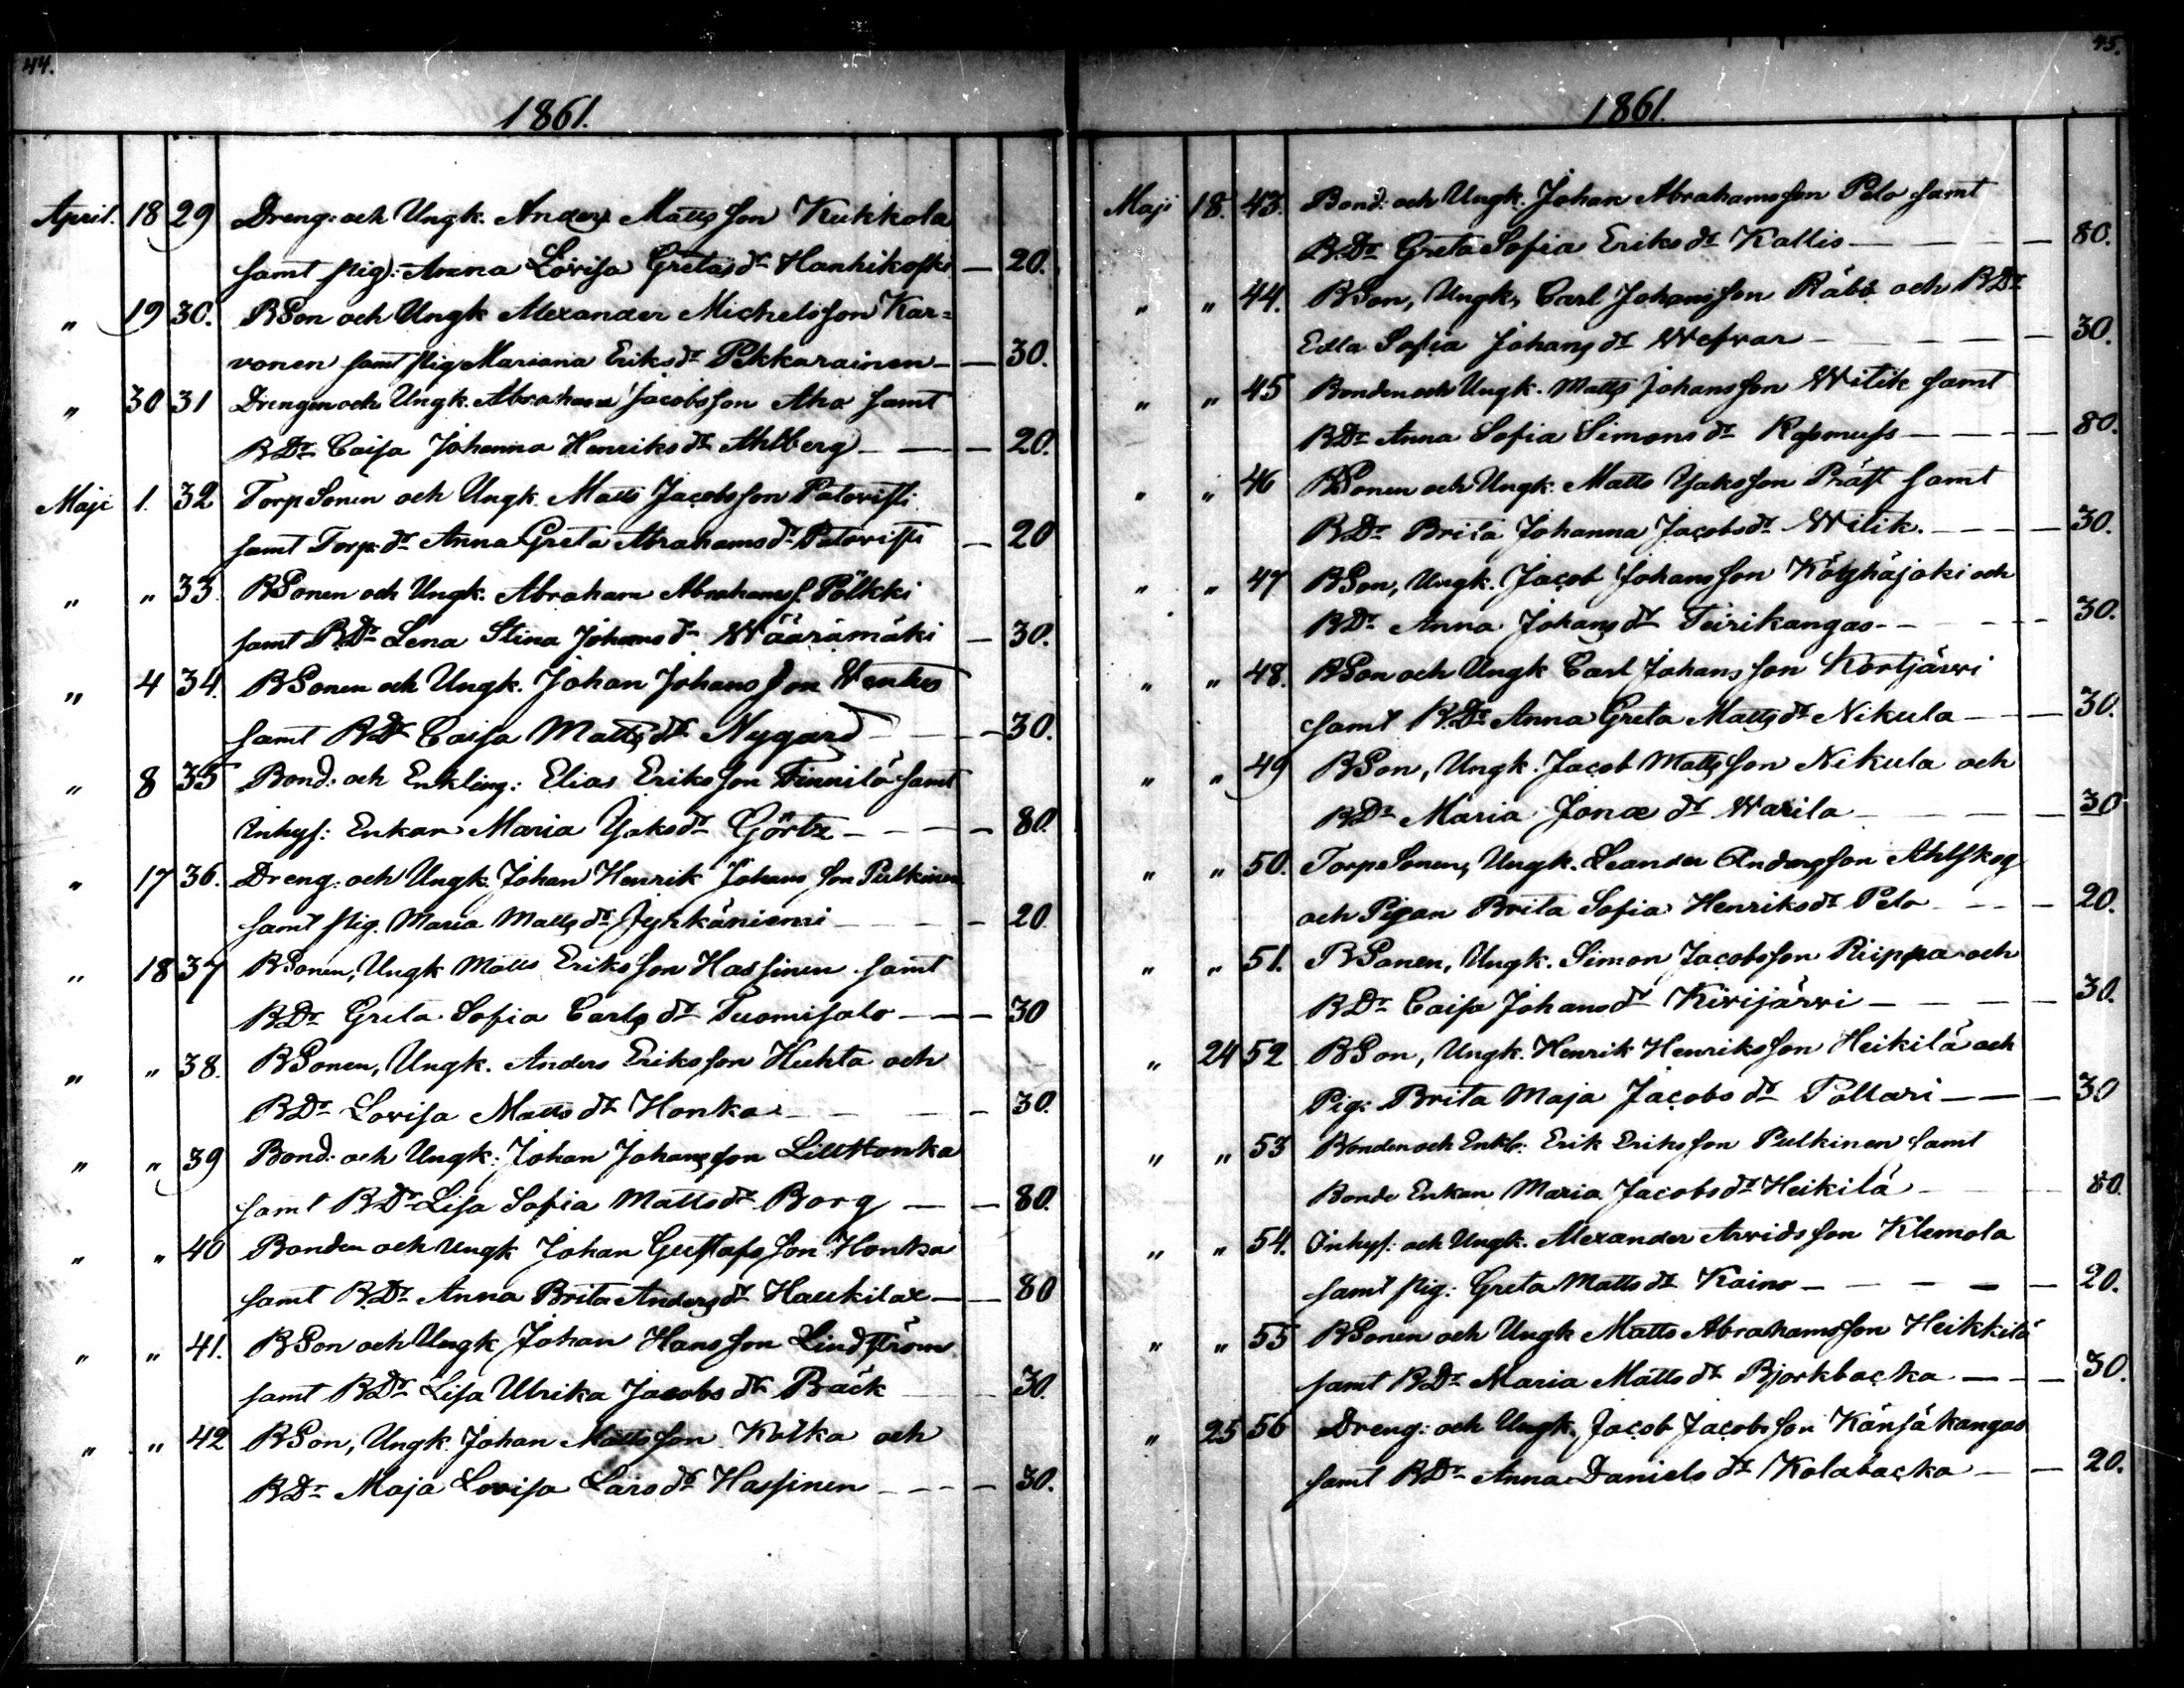 44.
1861.
April. 18 29 Dreng: och Ungk. Anders Matts son Kukkola
samt pig: Anna Lovisa Gretas dr Hanhikoski — 20.
" 19 30. BSon och Ungk Alexander Michelsson Kar=
vonen samt pig Mariana Eriks dr Pekkarainen — — 30.
" 30 31 Drengen och Ungk. Abraham Jacobsson Aho samt
BDr Caisa Johanna Henriks dr Ahlberg — — — 20.
Maji 1. 32 TorpSonen och Ungk. Matts Jacobsson Patovisti
samt Torp. dr Anna Greta Abrahams dr Patovisti — 20
" " 33 BSonen och Ungk. Abraham Abrahamss. Pölkki
samt BDr Lena Stina Johans dr Wäärämäki — 30.
" 4 34. BSonen och Ungk. Johan Johans son
samt BDr Caisa Matts dr Nygård — — — 30.
" 8 35 Bond: och Enkling: Elias Eriksson Finnilä samt
Inhys: Enkan Maria Yaks dr Görtz — — — — 80.
" 17 36. Dreng: och Ungk. Johan Henrik Johans son Pulkinen
samt pig. Maria Matts dr Jyrkäniemi — — — — 20
" 18 37 BSonen, Ungk Matts Eriksson Hassinen samt
BDr Greta Sofia Carls dr Tuomisalo — — — 30
" " 38. BSonen, Ungk. Anders Eriksson Huhta och
BDr Lovisa Matts dr Honka — — — — 30.
" " 39 Bond: och Ungk: Johan Johansson LillHonka
samt BDr Lisa Sofia Matts dr Borg — — 80.
" " 40 Bonden och Ungk Johan Gustafs son Honka
samt BDr Anna Brita Anders dr Haukilax — — 80
" " 41. BSon och Ungk Johan Hansson Lindström
samt BDr Lisa Ulrika Jacobs dr Bäck — — 30.
" " 42 BSon, Ungk. Johan Mattsson Kolka och
BDr Maja Lovisa Lars dr Hassinen — — — 30.
45.
1861.
Maji 18. 43. Bond: och Ungk. Johan Abrahamsson Pelo samt
BDr Greta Sofia Eriks dr Kallis — — — — 80.
" " 44. BSon, Ungk, Carl Johansson Råbb och BDr
Edla Sofia Johans dr Wefvar — — — — 30.
" " 45 Bonden och Ungk. Matts Johansson Witik samt
BDr Anna Sofia Simons dr Rasmuss — — — — 80.
" " 46 BSonen och Ungk: Matts Yaksson Präst samt
BDr Brita Johanna Jacobs dr Witik. — — — 30.
" " 47 BSon, Ungk. Jacob Johansson Köyhäjoki och
BDr Anna Johans dr Teirikangas — — — — 30.
" " 48. BSon och Ungk Carl Johansson Kortjärvi
samt BDr Anna Greta Matts dr Nikula — — — 30.
" " 49 BSon, Ungk. Jacob Mattsson Nikula och
BDr Maria Jonæ dr Warila — — — — 30
" " 50. TorpSonen, Ungk. Leander Andersson Ahlskog
och Pigan Brita Sofia Henriks dr Pelo — — — 20.
" " 51. BSonen, Ungk. Simon Jacobsson Riippa och
BDr Caisa Johans dr Kivijärvi — — — — 30.
" 24 52 BSon, Ungk. Henrik Henriksson Heikilä och
Pig: Brita Maja Jacobs dr Pollari — — — 30
" " 53 Bonden och Enkl: Erik Eriksson Pulkinen samt
Bonde Enkan Maria Jacobs dr Heikilä — — — 80.
" " 54. Inhys: och Ungk. Alexander Arvidsson Klemola
samt pig: Greta Matts dr Kaino — — — — — 20.
" " 55 BSonen och Ungk Matts Abrahamsson Heikkilä
samt BDr Maria Matts dr Bjorkbacka — — — 30.
" 25 56 Dreng: och Ungk. Jacob Jacobsson Känsäkangas
samt BDr Anna Daniels dr Kolabacka — — 20.